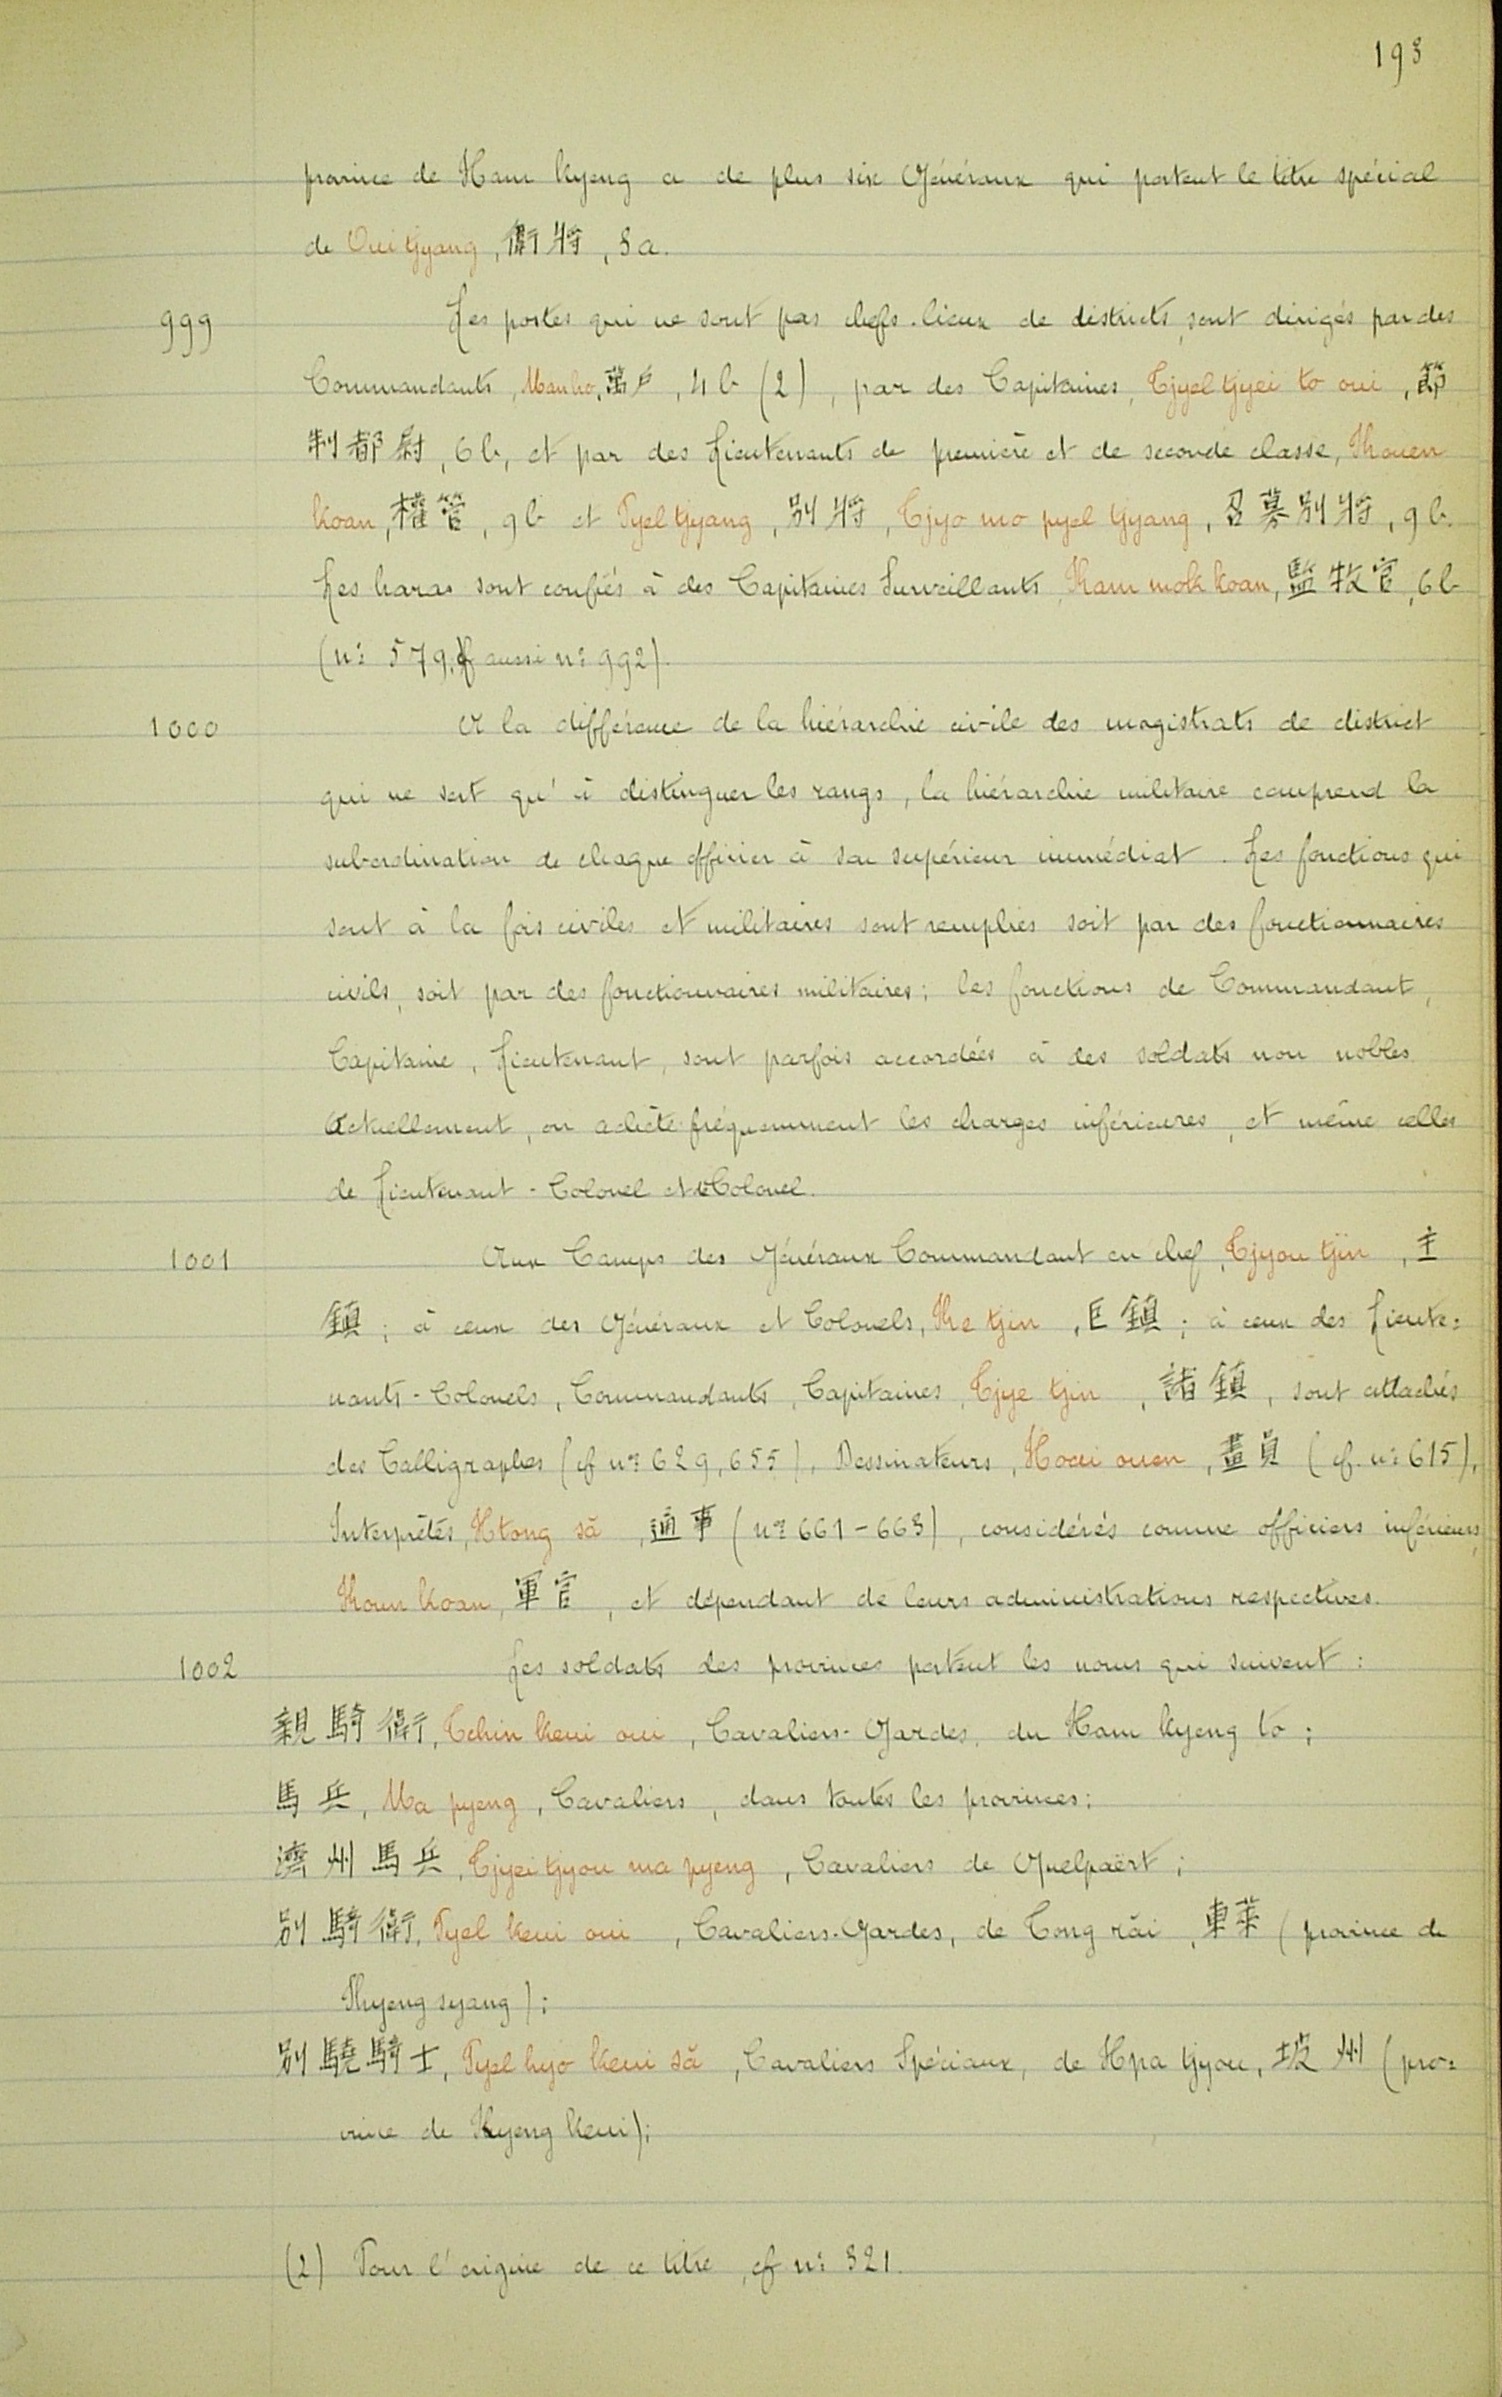 193
province de Ham kyeng a de plus six Généraux qui portent le titre spécial
de Oui tjyang, 衛將, 3a.
999 Les postes qui ne sont pas chefs-lieux de districts, sont dirigés par des
Commandants, Man ho, 萬戶, 4b (2), par des Capitaines, Tjyel tjyei to oui, 節
制都尉, 6b, et par des Lieutenants de première et de seconde classe, Kouen
koan, 權管, 9b et Pyel tjyang, 別將, Tjyo mo pyel tjyang, 召募別將, 9b.
Les haras sont confiés à des Capitaines Surveillants, Kam mok koan, 監牧官, 6b
(nº 579, cf aussi nº 992).
1000 A la différence de la hiérarchie civile des magistrats de district
qui ne sert qu'à distinguer les rangs, la hiérarchie militaire comprend la
subordination de chaque officier à son supérieur immédiat. Les fonctions qui
sont à la fois civiles et militaires sont remplies soit par des fonctionnaires
civils, soit par des fonctionnaires militaires; les fonctions de Commandant,
Capitaine, Lieutenant, sont parfois accordées à des soldats non nobles.
Actuellement, on achète fréquemment les charges inférieures, et même celles
de Lieutenant-Colonel et Colonel.
1001 Aux Camps des Généraux Commandant en chef, Tjyou tjin, 主
鎮; à ceux des Généraux et Colonels, Ke tjin, 巨鎮; à ceux des Lieute=
nants-Colonels, Commandants, Capitaines, Tjye tjin, 諸鎮, sont attachés
des Calligraphes (cf nos 629, 655), Dessinateurs, Hoai ouen, 畫員 (cf. nº 615),
Interprètes, Htong să, 通事 (nos 661-663), considérés comme officiers inférieurs,
Koun koan, 軍官, et dépendant de leurs administrations respectives.
1002 Les soldats des provinces portent les noms qui suivent:
親騎衛, Tchin keui oui, Cavaliers-Gardes, du Ham kyeng to;
馬兵, Ma pyeng, Cavaliers, dans toutes les provinces;
濟州馬兵, Tjyei tjyou ma pyeng, Cavaliers de Quelpaërt;
別騎衛, Pyel keui oui, Cavaliers-Gardes, de Tong răi, 東萊 (province de
Kyeng syang);
別驍騎士, Pyel hyo keui să, Cavaliers Spéciaux, de Hpa tjyou, 坡州 (pro=
vince de Kyeng keui);
(2) Pour l'origine de ce titre, cf nº 321.